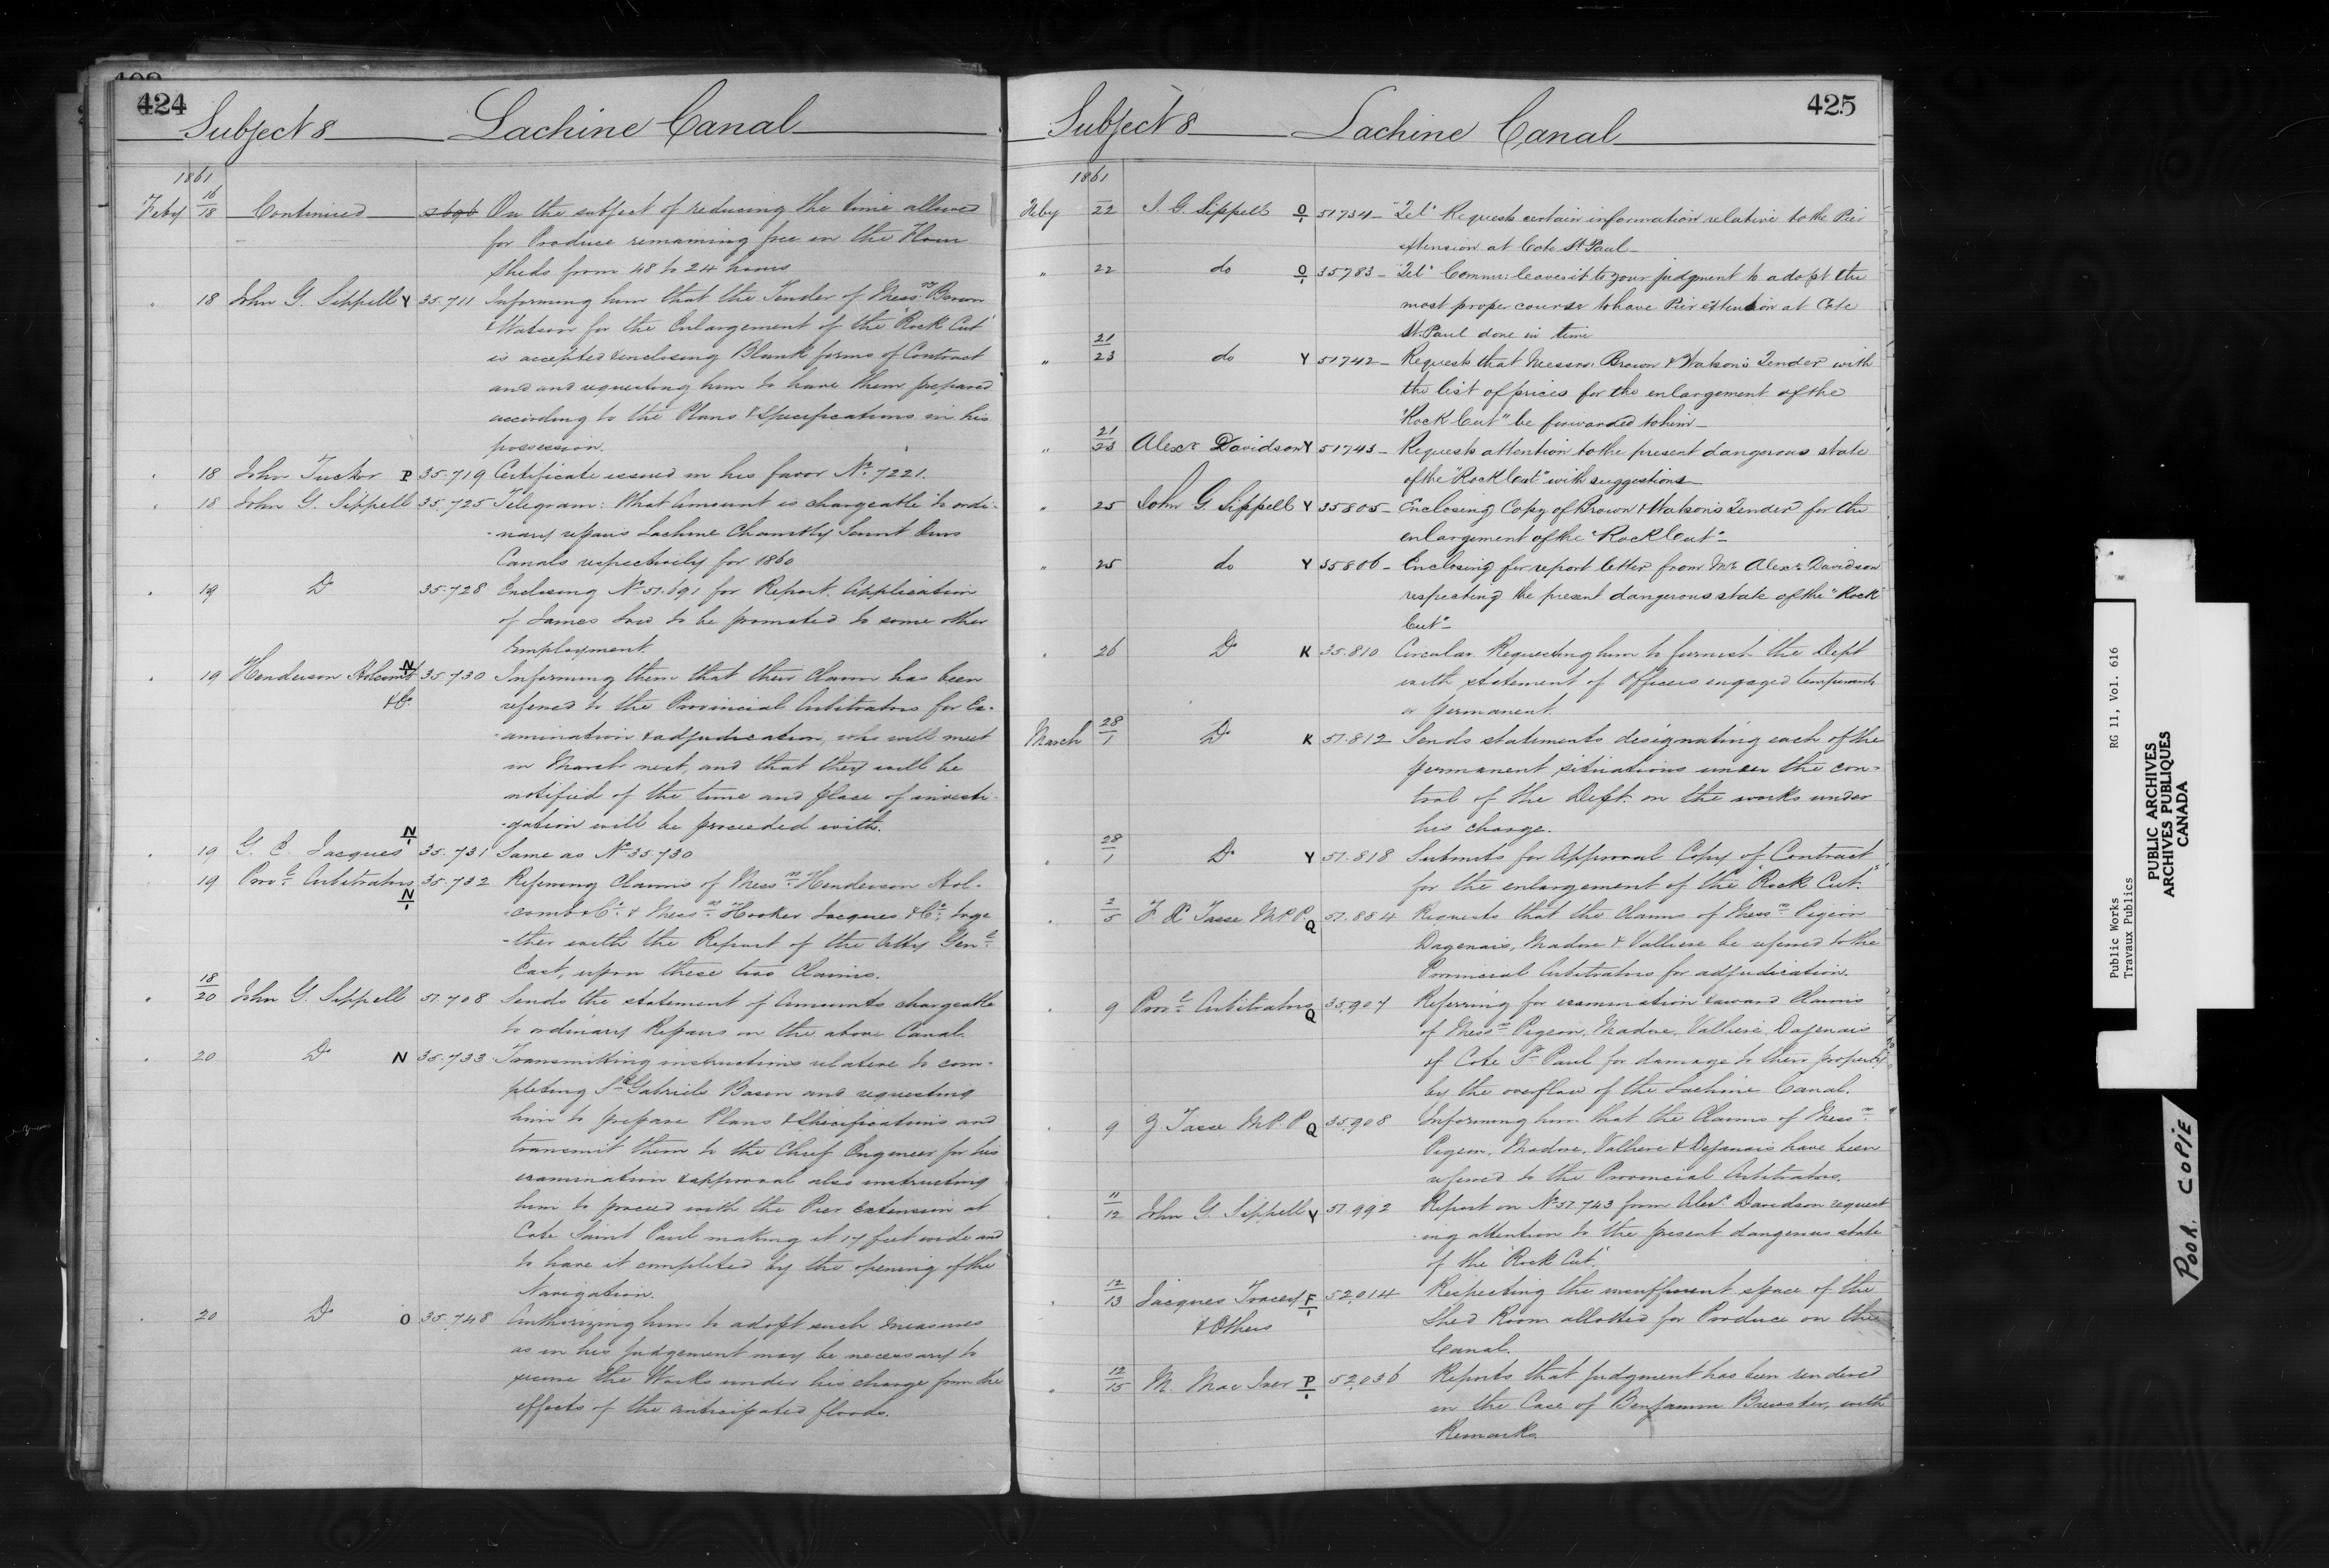 424
Subject 8 Lachine Canal
1861
Feby 16/18 Continued On the subject of reducing the time allowed
for Produce remaining free in the Flour
Sheds from 48 to 24 hours
" 18 John G. Sippell Y 35.711 Informing him that the Tender of Messrs Brown
& Watson for the Enlargement of the "Rock Cut"
is accepted & enclosing Blank forms of Contract
and and requesting him to have them prepared
according to the Plans & Specifications in his
possession.
" 18 John Tucker P 35.719 Certificate issued in his favor No 7221.
" 18 John G. Sippell 35.725 Telegram: What Amount is chargeable to ordi-
-nary repairs Lachine Chambly Saint Ours
Canals respectively for 1860
" 19 Do 35.728 Enclosing No 51.691 for Report. Application
of James to be promoted to some other
Employment
" 19 Henderson Holcomb N/1 35.730 Informing them that their Claim has been
& Co. referred to the Provincial Arbitrators for Ex-
-amination & adjudication, who will meet
in March next, and that they will be
notified of the time and place of investi-
-gation will be proceeded with.
" 19 G. C. Jacques N/1 35.731 Same as No 35.730
" 19 Provl Arbitrators N/1 35.732 Referring Claims of Messrs Henderson Hol-
-comb & Co. & Messrs Hooker Jacques & Co. toge
-ther with the Report of the Atty Genl
East, upon these two Claims.
" 18/20 John G. Sippell 51.708 Sends the statement of Amounts chargeable
to ordinary Repairs on the above Canal.
" 20 Do N 35.733 Transmitting instructions relative to com-
pleting St Gabriels Basin and requesting
him to prepare Plans & Specifications and
transmit them to the Chief Engineer for his
examination & approval also instructing
him to proceed with the Pier Extension at
Cote Saint Paul making it 17 feet wide and
to have it completed by the opening of the
Navigation.
" 20 Do O 35.748 Authorizing him to adopt such measures
as in his judgement may be necessary to
secure the Works under his charge from the
effects of the anticipated floods.
425
Subject 8 Lachine Canal
1861
Feby 22 J. G. Sippell O/1 51734 - "Tel" Requests certain information relative to the Pier
extension at Cote St Paul -
" 22 do O/1 35783 - "Tel" Commr: leaves it to your judgment to adopt the
most proper course to have Pier extension at Cote
St. Paul done in time
" 21/23 do Y 51742 - Requests that Messrs. Brown & Watson's Tender with
the list of prices for the enlargement of the
"Rock Cut" be forwarded to him -
" 21/23 Alexr Davidson Y 51743 - Requests attention to the present dangerous state
of the "Rock Cut" with suggestions
" 25 John G Sippell Y 35805 - Enclosing Copy of Brown & Watson's Tender for the
enlargement of the "Rock Cut" -
" 25 do Y 35806 - Enclosing for report letter from Mr Alexr Davidson
respecting the present dangerous state of the "Rock
Cut" -
" 26 Do K 35.810 Circular. Requesting him to furnish the Dept
with statement of Officers engaged temporarily
or permanent.
March 28/1 Do K 51.812 Sends statements designating each of the
permanent situations under the con-
trol of the Dept. on the works under
his charge.
" 28/1 Do Y 51.818 Submits for Approval Copy of Contract
for the enlargement of the "Rock Cut."
" 2/5 F. X. Tasse M.P.P. Q 51.884 Requests that the Claims of Messrs Pigeon
Dagenais, Madore & Valliere be referred to the
Provincial Arbitrators for adjudication.
" 9 Provl Arbitrators Q 35.907 Referring for examination & award Claims
of Messrs Pigeon, Madore, Valliere, Dagenais
of Cote St Paul for damage to their property
by the overflow of the Lachine Canal.
" 9 Tasse M.P.P. Q 35.908 Informing him that the Claims of Messrs
Pigeon, Madore, Valliere & Dejanais have been
referred to the Provincial Arbitrators.
" 11/12 John G. Sippell Y 51.992 Report on No 51.743 from Alexr Davidson request
-ing attention to the present dangerous state
of the "Rock Cut".
" 12/13 Jacques Tracey F/1 52,014 Respecting the insufficient space of the
& Others Shed Room allotted for Produce on the
Canal.
" 12/15 M. Mac Iver P/1 52,036 Reports that judgment has been rendered
in the Case of Benjamin Brewster, with
Remarks.
Public Works RG 11, Vol. 616
Travaux Publics
PUBLIC ARCHIVES
ARCHIVES PUBLIQUES
CANADA
POOR COPIE